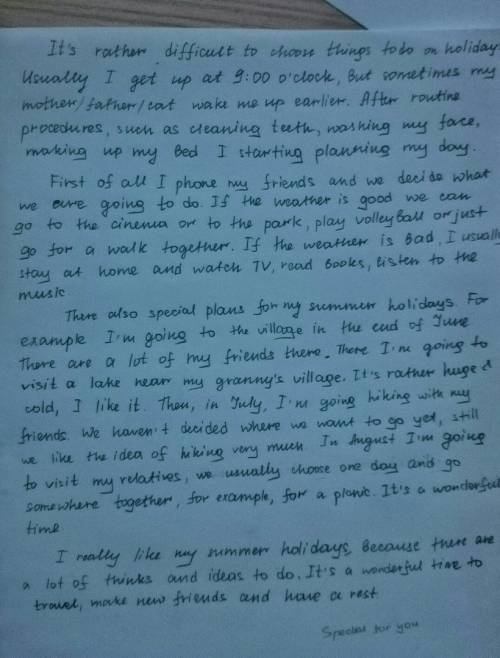 It's rather difficult to choose things to do on holiday
Usually I get up at 9:00 o'clock, But sometimes my
mother/father/cat wake me up earlier. After routine
procedures, such as cleaning teeth, washing my face,
making up my Bed I starting planning my day.
First of all I phone my friends and we decide what
we are going to do. If the weather is good we can
go to the cinema or to the park, play volleyBall or just
go for a walk together. If the weather is Bad, I usually
stay at home and watch TV, read Books, listen to the
music
There also special plans for my summer holidays. For
example I'm going to the village in the end of June
There are a lot of my friends there. There I'm going to
visit a lake near my granny's village. It's rather huge &
cold, I like it. Then, in July, I'm going hiking with my
friends. We haven't decided where we want to go yet, still
we like the idea of hiking very much. In August I'm going
to visit my relatives, we usually choose one day and go
somewhere together, for example, for a picnic. It's a wonderful
time
I really like my summer holidays, Because there are
a lot of thinks and ideas to do. It's a wonderful time to
travel, make new friends and have a rest.
Special for you